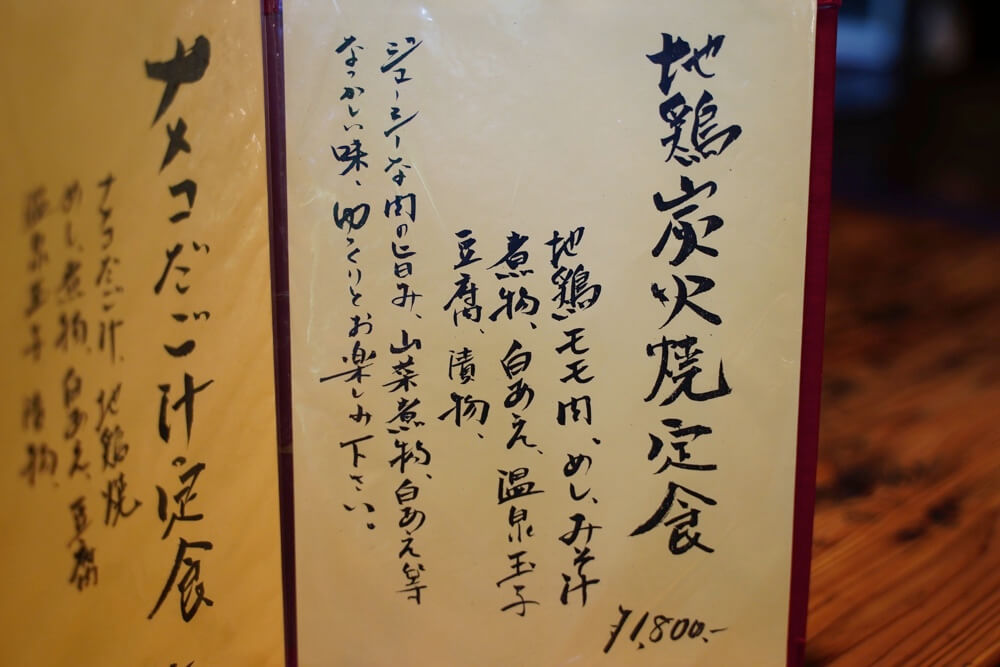 地鶏炭火焼定食
地鶏モモ肉、めし、みそ汁
煮物、白あえ、温泉玉子
豆腐、漬物、
ジューシーな肉の旨み、山菜煮物、白あえ等
なつかしい味、ゆっくりとお楽しみ下さい。
¥1,800.-
ナメコだご汁定食
ナメコだご汁、地鶏焼
めし、煮物、白あえ、豆腐
温泉玉子 漬物、